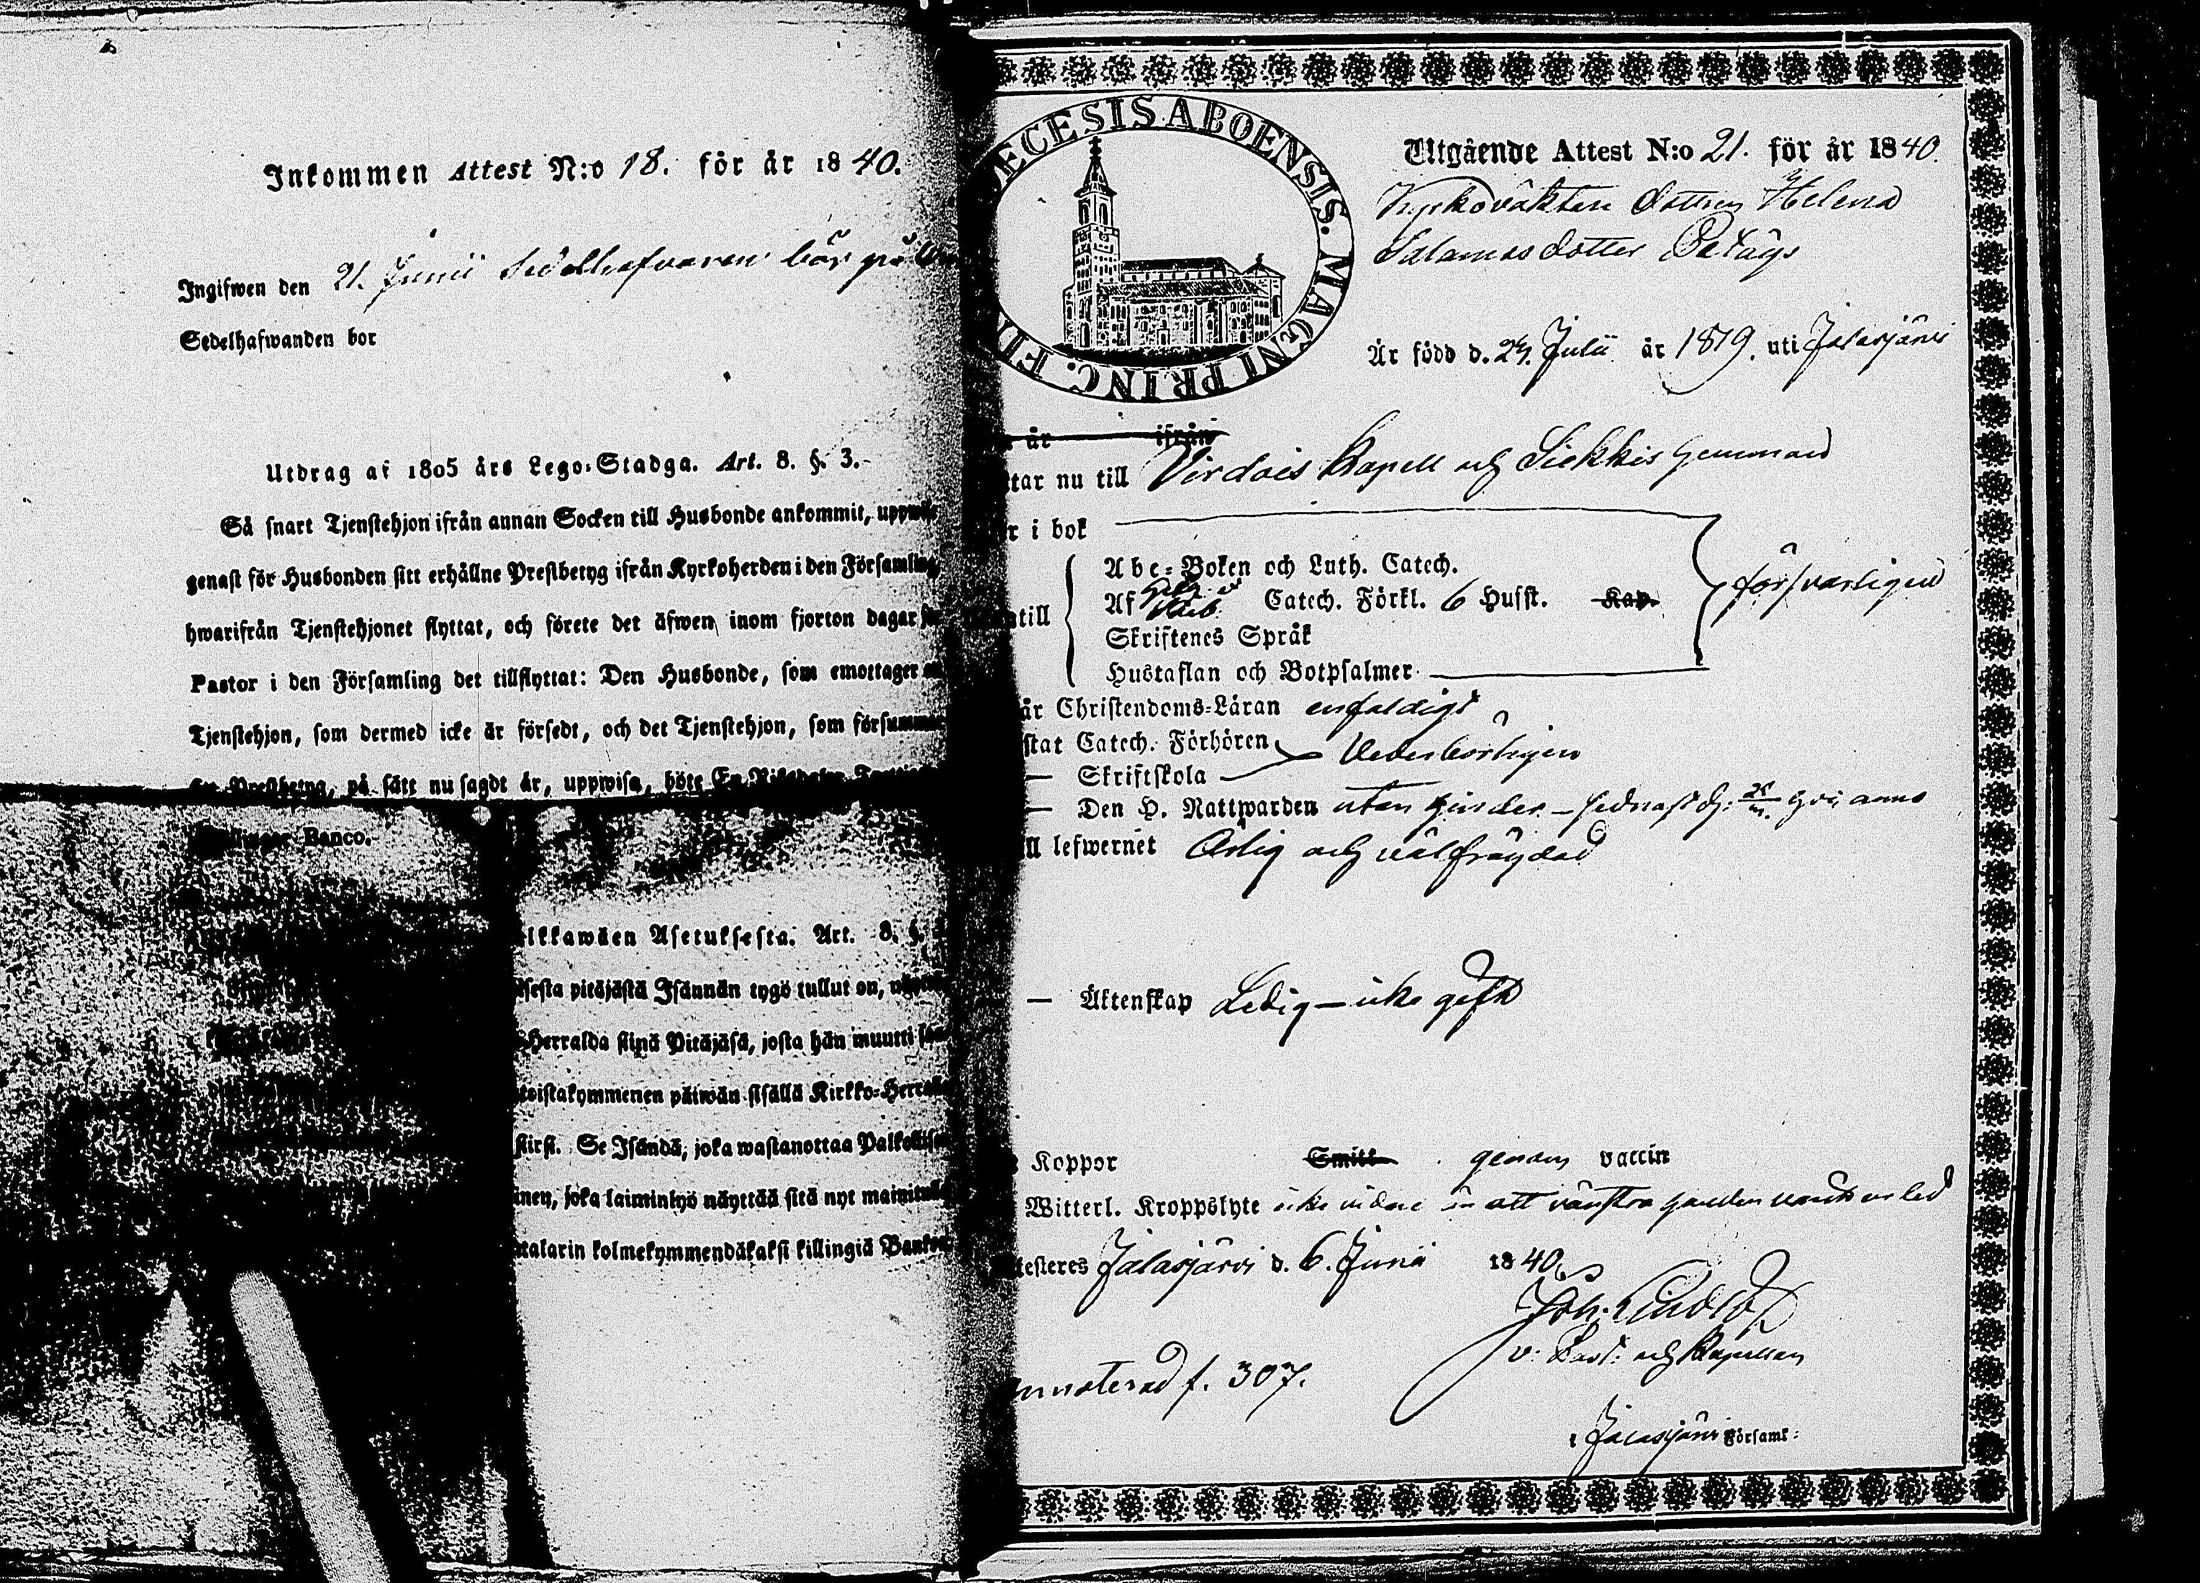 Inkommen Attest N:o 18. för år 1840.
Ingifwen den 21. Junii Sedelhafvaren bör på
Sedelhafwanden bor
Utdrag af 1805 års Lego-Stadga. Art. 8. §. 3.
Så snart Tjenstehjon ifrån annan Socken till Husbonde ankommit,
genast för Husbonden sitt erhållne Prestbetyg ifrån Kyrkoherden i den Församling,
hwarifrån Tjenstehjonet flyttat, och förete det äfwen inom fjorton dagar
Pastor i den Församling det tillflyttat: Den Husbonde, som emottager
Tjenstehjon, som dermed icke är försedt, och det Tjenstehjon, som försummar
Prestbetyg, på sätt nu sagdt är, uppwisa, böte En
Banco.
lkkawäen Asetuksesta. Art. 8. §.
sesta pitäjästä Isännän tygö tullut on,
Herralda siinä Pitäjäsä, josta hän muutti
toistakymmenen päiwän sisällä Kirkko-Herra
Se Isändä, joka wastanottaa
nen, joka laiminlyö näyttää sitä nyt
talarin kolmekymmendäkaksi killingiä
DIECESIS ABOENSIS. MAGNI PRINC. FI
Utgående Attest N:o 21. för år 1840.
Kyrkoväktare dottren Helena
Salomos dotter
Är född d. 24. Julii år 1819. uti Jalasjärvi
är ifrån
tar nu till Virdois Kapell och Siekkis hemman
r i bok
Abc-Boken och Luth. Catech.
Af Catech. Förkl. 6 Husst. Kap. försvarligen
ntill
Skriftenes Språk
Hustaflan och Botpsalmer
år Christendoms-Läran enfaldigt
stat Catech. Förhören
Vederbörligen
— Skriftskola
— Den H. Nattwarden utan hinder — sednast d. anno
ll lefwernet Ärlig och välfrägdad
— Äktenskap Ledig — icke gift
Koppor Smitt. genom vaccin
Witterl. Kroppslyte icke vidare än att vänstra handen
testeres Jalasjärvi d. 6. Junii 1840.
Joh.
v. Past. och Kapellan
nnoterad f. 307.
i Jalasjärvi Församl: